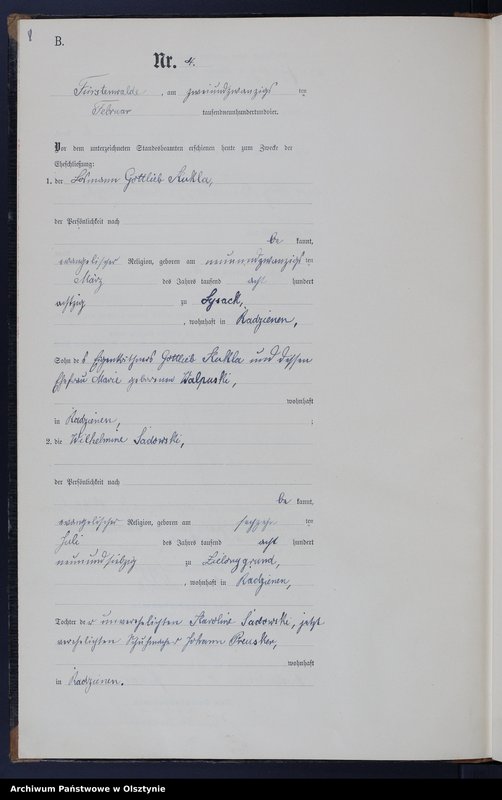 B.
Nr. 4.
Fürstenwalde, am zweiundzwanzigs ten
Februar tausendneunhundertundvier.
Vor dem unterzeichneten Standesbeamten erschienen heute zum Zwecke der
Eheschließung:
1. der Losmann Gottlieb Kukla,
der Persönlichkeit nach
be kannt,
evangelischer Religion, geboren am neunundzwanzigs ten
März des Jahres tausend acht hundert
achtzig zu Lysack,
, wohnhaft in Radzienen,
Sohn des Eigenkäthners Gottlieb Kukla und dessen
Ehefrau Marie geborenen Walpuski,
wohnhaft
in Radzienen, ;
2. die Wilhelmine Sadowski,
der Persönlichkeit nach
be kannt,
evangelischer Religion, geboren am sechzehn ten
Juli des Jahres tausend acht hundert
neunundsiebzig zu
, wohnhaft in Radzienen,
Tochter der unverehelichten Karoline Sadowski, jetzt
verehelichten Schuhmacher Johann
wohnhaft
in Radzienen.
Archiwum Państwowe w Olsztynie